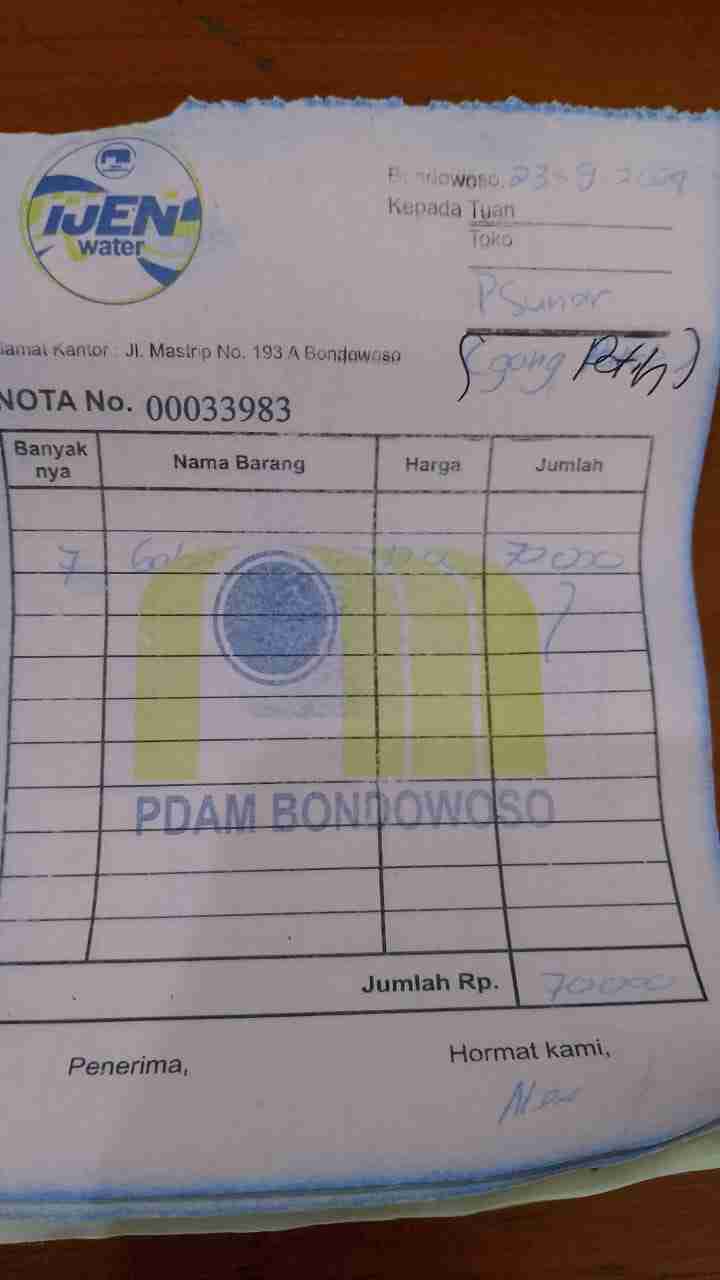 IJEN
water
Bondowoso, 23-9 2024
Kepada Tuan
Toko
P Sunar
(gang Petih)
lamat Kantor : Jl. Mastrip No. 193 A Bondowoso
NOTA No. 00033983
Banyak nya Nama Barang Harga Jumlah
7 70 000
PDAM BONDOWOSO
Jumlah Rp. 70000
Penerima, Hormat kami,